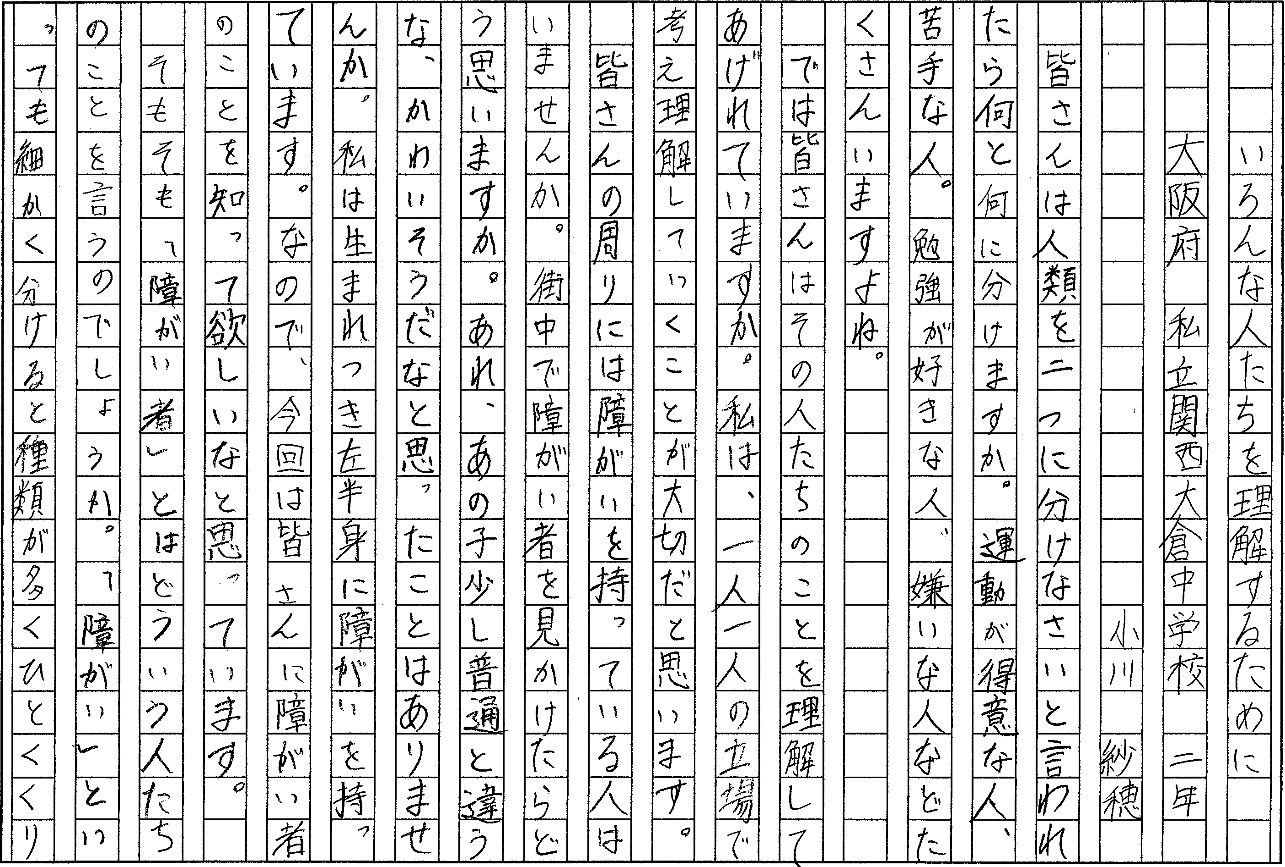 いろんな人たちを理解するために
大阪府 私立関西大倉中学校 二年
小川 紗穂
皆さんは人類を二つに分けなさいと言われ
たら何と何に分けますか。運動が得意な人、
苦手な人。勉強が好きな人、嫌いな人などた
くさんいますよね。
では皆さんはその人たちのことを理解して
あげれていますか。私は、一人一人の立場で
考え理解していくことが大切だと思います。
皆さんの周りには障がいを持っている人は
いませんか。街中で障がい者を見かけたらど
う思いますか。あれ、あの子少し普通と違う
な、かわいそうだなと思ったことはありませ
んか。私は生まれつき左半身に障がいを持っ
ています。なので、今回は皆さんに障がい者
のことを知って欲しいなと思っています。
そもそも「障がい者」とはどういう人たち
のことを言うのでしょうか。「障がい」とい
っても細かく分けると種類が多くひとくくり